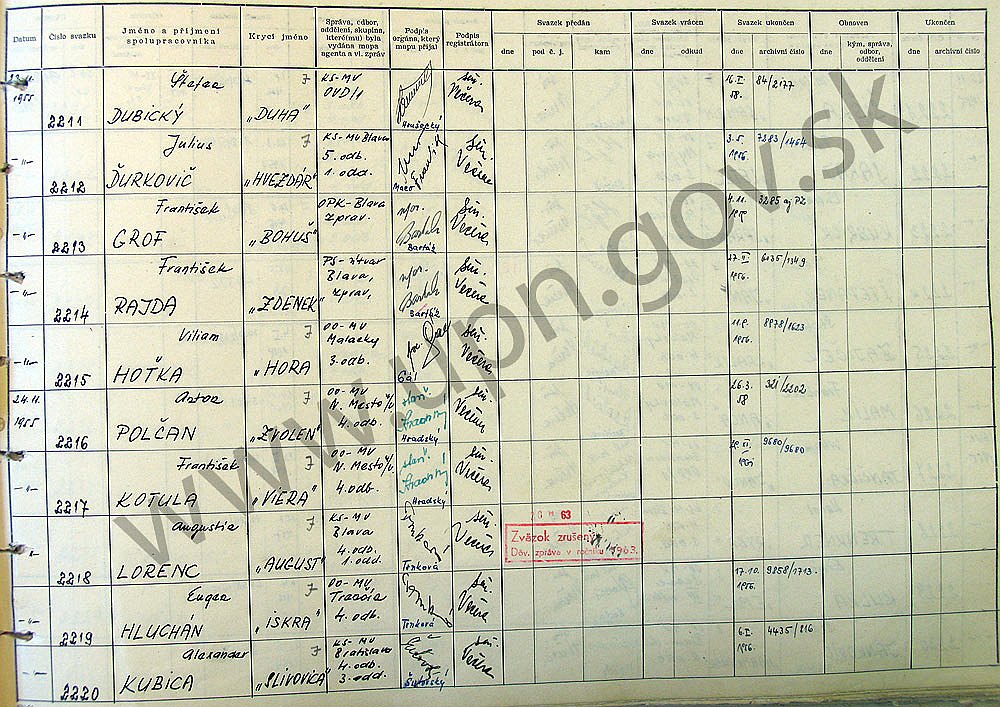 Datum Číslo svazku Jméno a příjmení spolupracovníka Krycí jméno Správa, odbor, oddělení, skupina, které(mu) byla vydána mapa agenta a vl. zpráv Podpis orgána, který mapu přijal Podpis registrátora Svazek předán Svazek vrácen Svazek ukončen Obnoven Ukončen
dne pod č. j. kam dne odkud dne archivní číslo dne kým, správa, odbor, oddělení dne archivní číslo
1955 2211 Štefan DUBICKÝ 7 „DUHA“ KS-MV OVD/1 Hrušecký Večera 16.I. 58. 84/2177
-„- 2212 Julius ĎURKOVIČ 7 „HVEZDÁR“ KS-MV Blava 5. odb. 1. odd. Maco Večera 3.5. 1956. 7283/1464
-„- 2213 František GROF „BOHUŠ“ OPK-Blava zprav. Barták Večera 4.11. 3285 aj PZ
-„- 2214 František RAJDA „ZDENEK“ PS-útvar Blava, zprav. Barták Večera 27. 1956. 6135/1349
-„- 2215 Viliam HOŤKA 7 „HORA OO-MV Malacky 3. odb. Gál Večera 11.9. 1956. 8978/1623
24.11. 1955 2216 Anton POLČAN 7 „ZVOLEN“ OO-MV N. Mesto n/V 4. odb. Hradský Večera 26.3. 58 321/2202
-„- 2217 František KOTULA 7 „VIERA“ OO-MV N. Mesto n/V. 4. odb. Hradský Večera 9680/9680
„ 2218 Augustín LORENC 7 „AUGUST“ KS-MV Blava 4. odb. 1. odd. Trnková Večera
63
Zväzok zrušený
Dôv. zpráva v ročníku 1963.
-„- 2219 Eugen HLUCHÁN 7 „ISKRA“ OO-MV Trnava 4. odb. Trnková Večera 17.10. 1956. 9858/1713.
-„- 2220 Alexander KUBICA 7 „SLIVOVICA“ KS-MV Bratislava 4. odb. 3. odd. Večera 6.I. 1956. 4435/816
www.upn.gov.sk